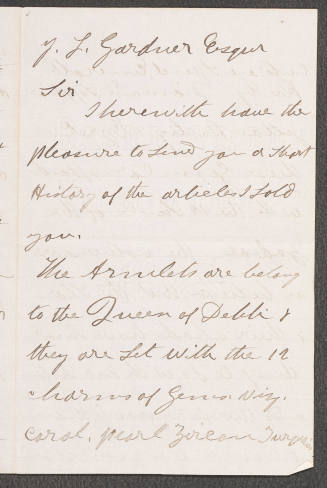 J. L. Gardner Esqur
Sir
I herewith have the
pleasure to Send you a Short
History of the articles I Sold
you.
The Armlets are belong
to the Queen of Dehli &
they are Set With the 12
charms of Gems. Viz.
Coral, pearl Zircon Turquois